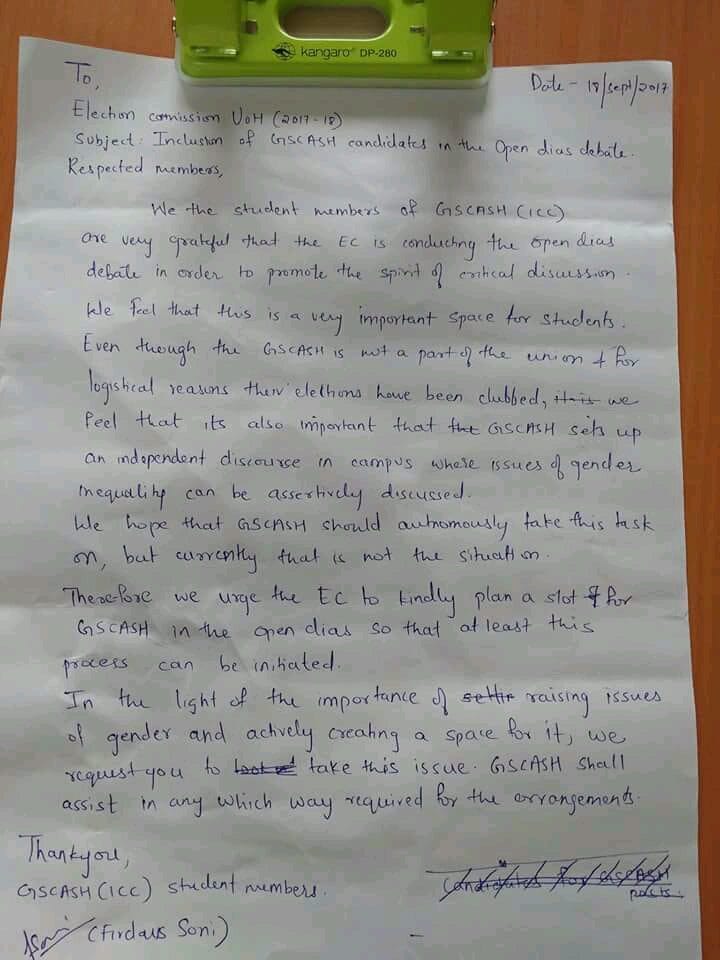 kangaro® DP-280
To,
Date - 18/sept/2017
Election comission UoH (2017-18)
Subject: Inclusion of GSCASH candidates in the Open dias debate.
Respected members,
We the student members of GSCASH (ICC)
are very grateful that the EC is conducting the open dias
debate in order to promote the spirit of critical discussion.
We feel that this is a very important space for students.
Even though the GSCASH is not a part of the union & for
logistical reasons their elections have been clubbed, it is we
feel that its also important that the GSCASH sets up
an independent discourse in campus where issues of gender
inequality can be assertively discussed.
We hope that GSCASH should autnomously take this task
on, but currently that is not the situation.
Therefore we urge the EC to kindly plan a slot for
GSCASH in the open dias so that at least this
process can be initiated.
In the light of the importance of raising issues
of gender and actively creating a space for it, we
request you to take this issue. GSCASH shall
assist in any which way required for the arrangements.
Thankyou,
GSCASH (ICC) student members.
Candidates for GSCASH
posts.
(Firdaus Soni)